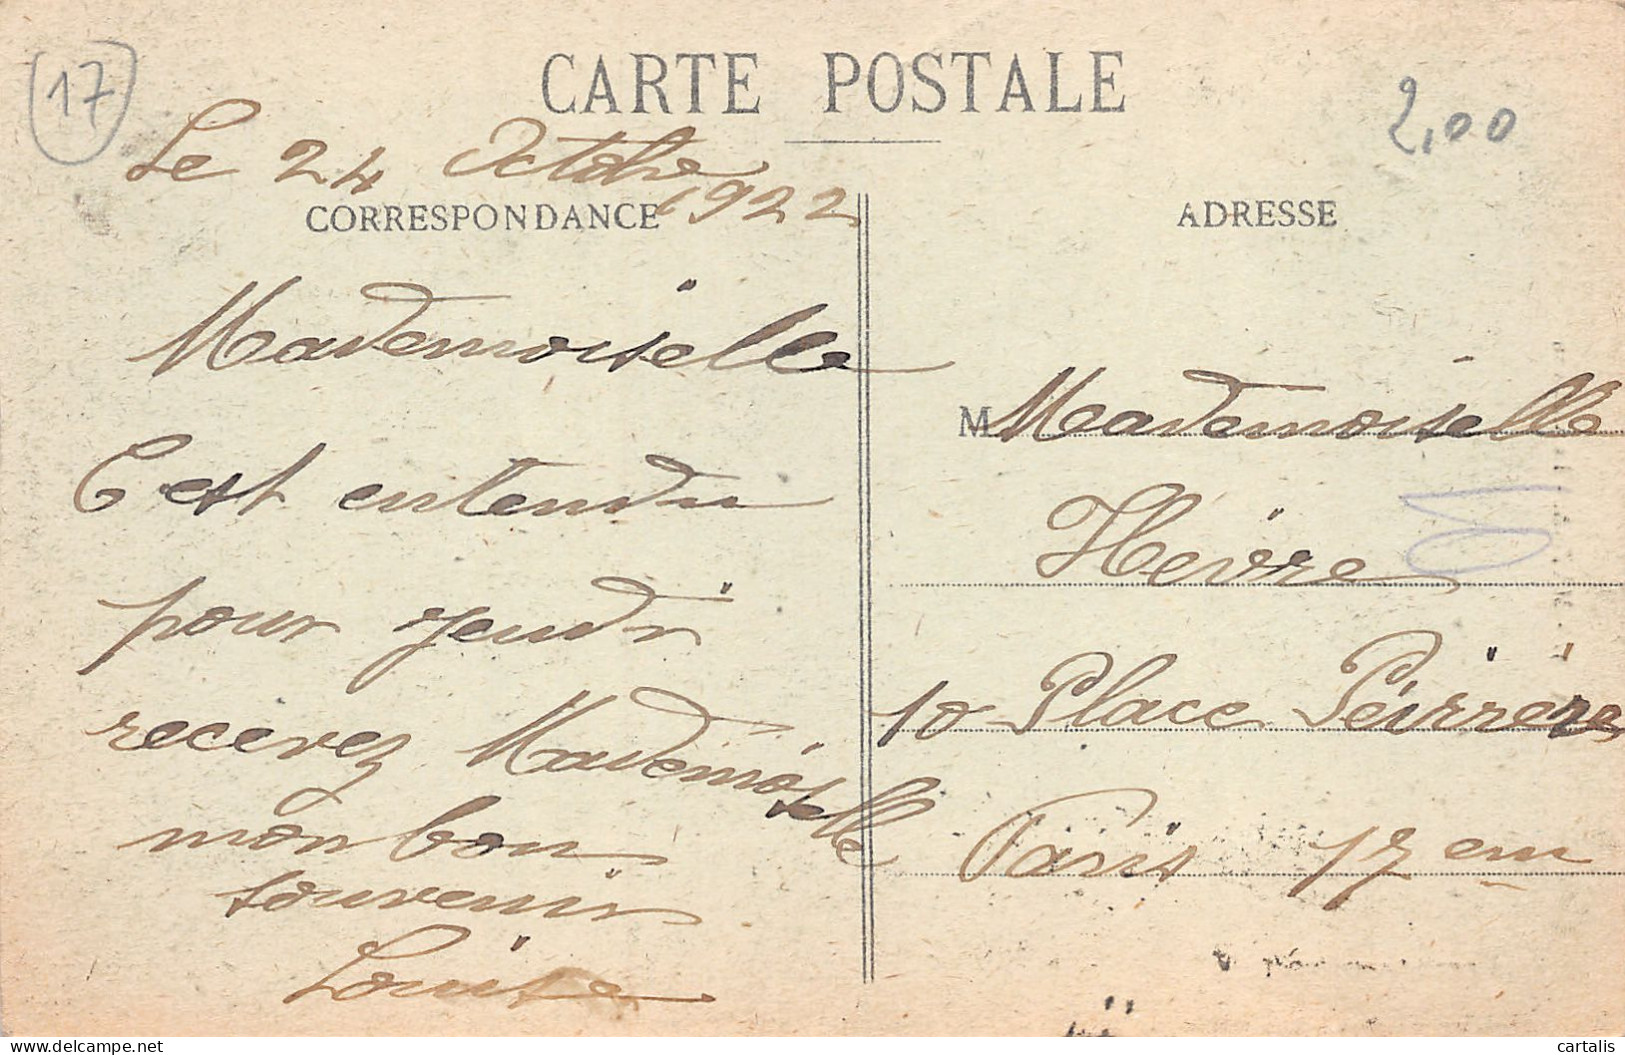 17
CARTE POSTALE
2,00
Le 24 Octobre
1922
CORRESPONDANCE
ADRESSE
Mademoiselle
C est entendu
pour jeudi
recevez Mademoiselle
mon bon
souvenir
Louise
M Mademoiselle
Hevire
10 Place Péirrère
Paris 17 em
delcampe.net
cartalis